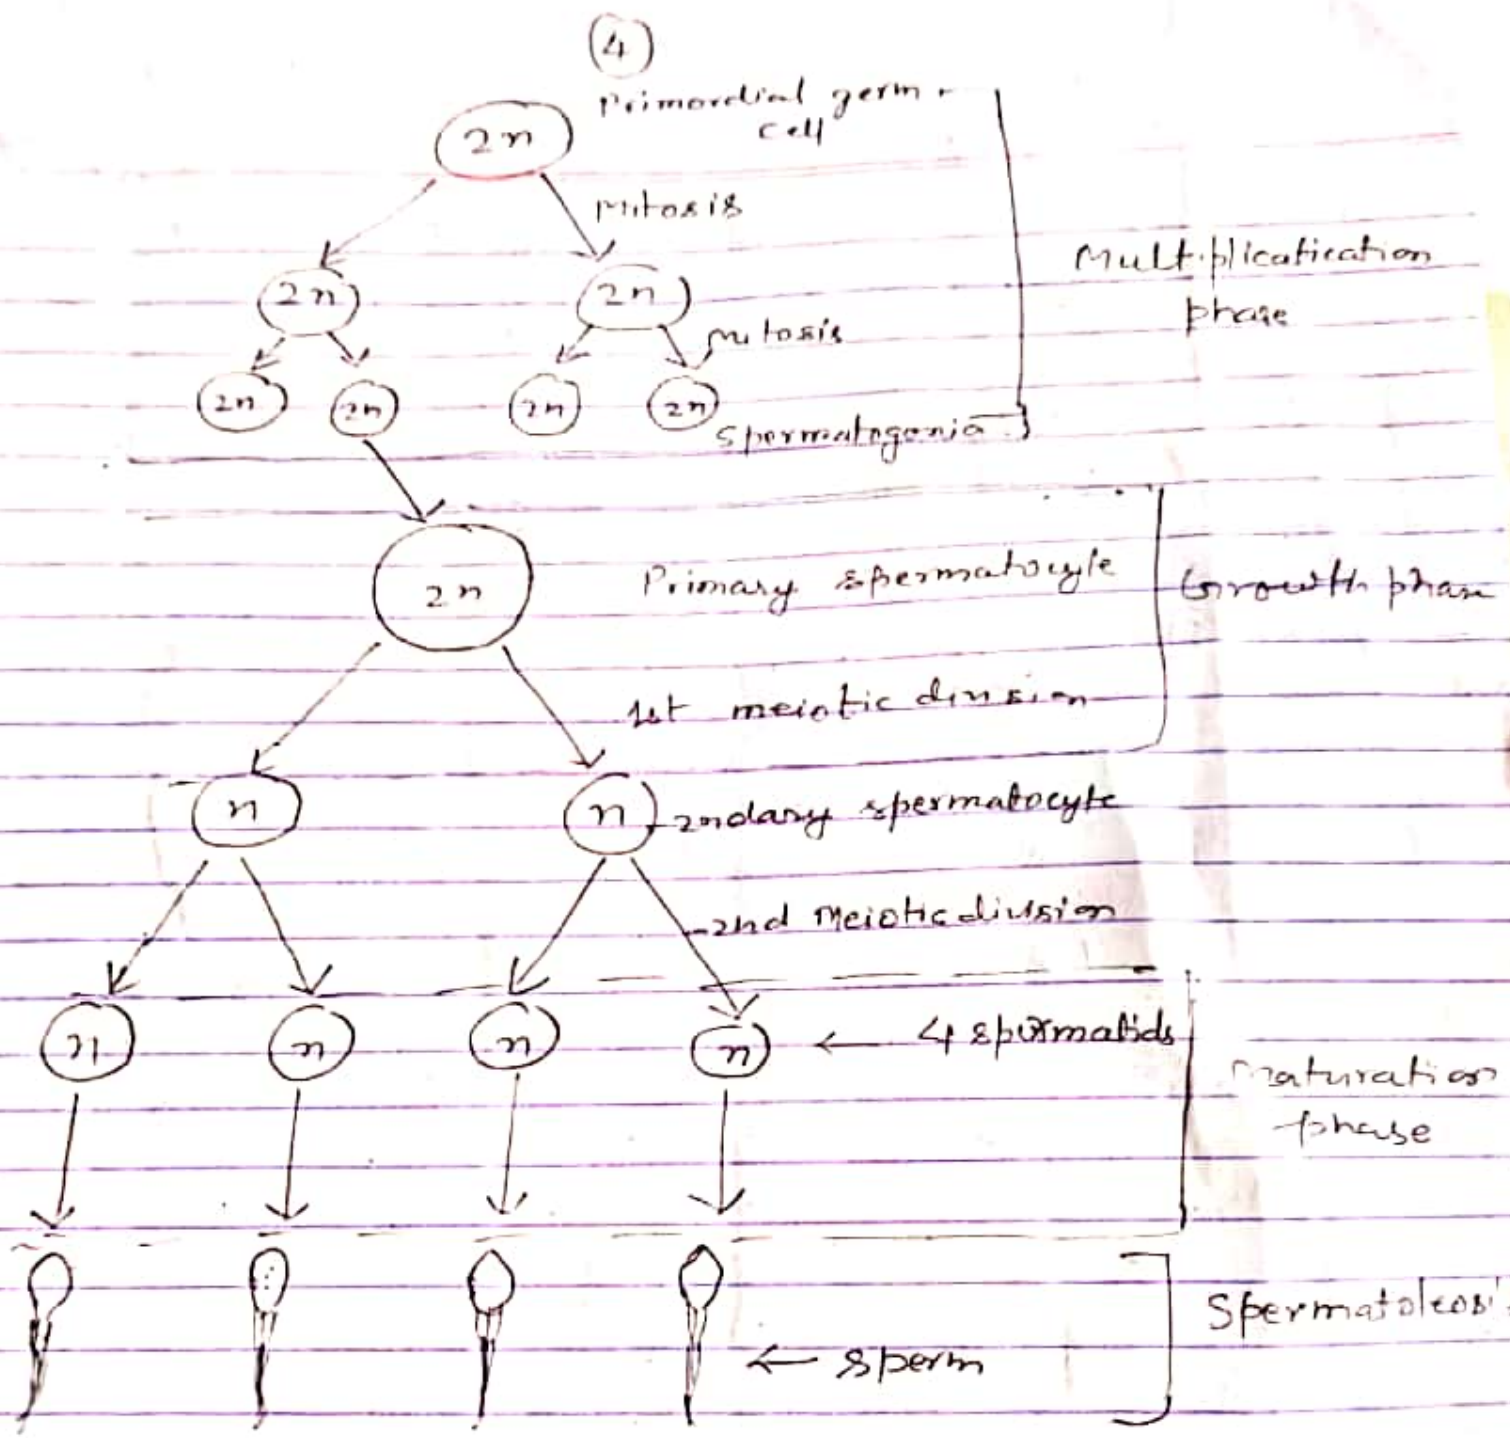 4
Primordial germ
cell
2n
Mitosis
2n 2n
Multiplicatication
phase
Mitosis
2n 2n 2n 2n
Spermatogonia
2n
Primary spermatocyte
Growth phase
1st meiotic division
n n
2ndary spermatocyte
2nd Meiotic division
n n n n
4 spermatids
Maturation
phase
sperm